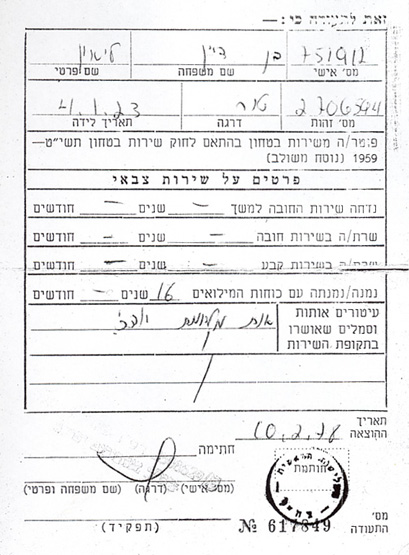 זאת לתעודה כי: —
751912 בן
מס' אישי שם משפחה שם פרטי
4.1.23
מס' זהות דרגה תאריך לידה
פוטר/ה משירות בטחון בהתאם לחוק שירות בטחון תשי"ט—
1959 (נוסח משולב)
פרטים על שירות צבאי
נדחה שירות החובה למשך — שנים — חודשים
שרת/ה בשירות חובה — שנים — חודשים
שרת/ה בשירות קבע — שנים — חודשים
נמנה/נמנתה עם כוחות המילואים 16 שנים — חודשים
עיטורים אותות
וסמלים שאושרו
בתקופת השירות
אות
תאריך
ההוצאה 10.2.78
חתימה
חותמת
(מס' אישי) (דרגה) (שם משפחה ופרטי)
מס'
התעודה № 617849 (תפקיד)